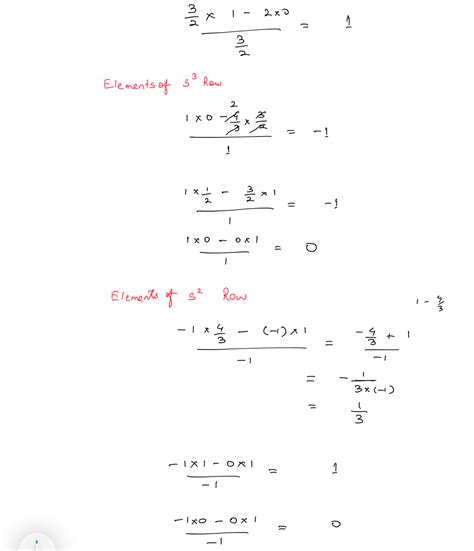 3/2 × 1 - 2×0 / 3/2 = 1
Elements of s³ Row
1×0 - 4/3 × 3/2 / 1 = -1
2
1×1/2 - 3/2×1 / 1 = -1
1×0 - 0×1 / 1 = 0
Elements of s² Row
1 - 4/3
-1 × 4/3 - (-1)×1 / -1 = -4/3 + 1 / -1
= - 1 / 3×(-1)
= 1/3
-1×1 - 0×1 / -1 = 1
-1×0 - 0×1 / -1 = 0